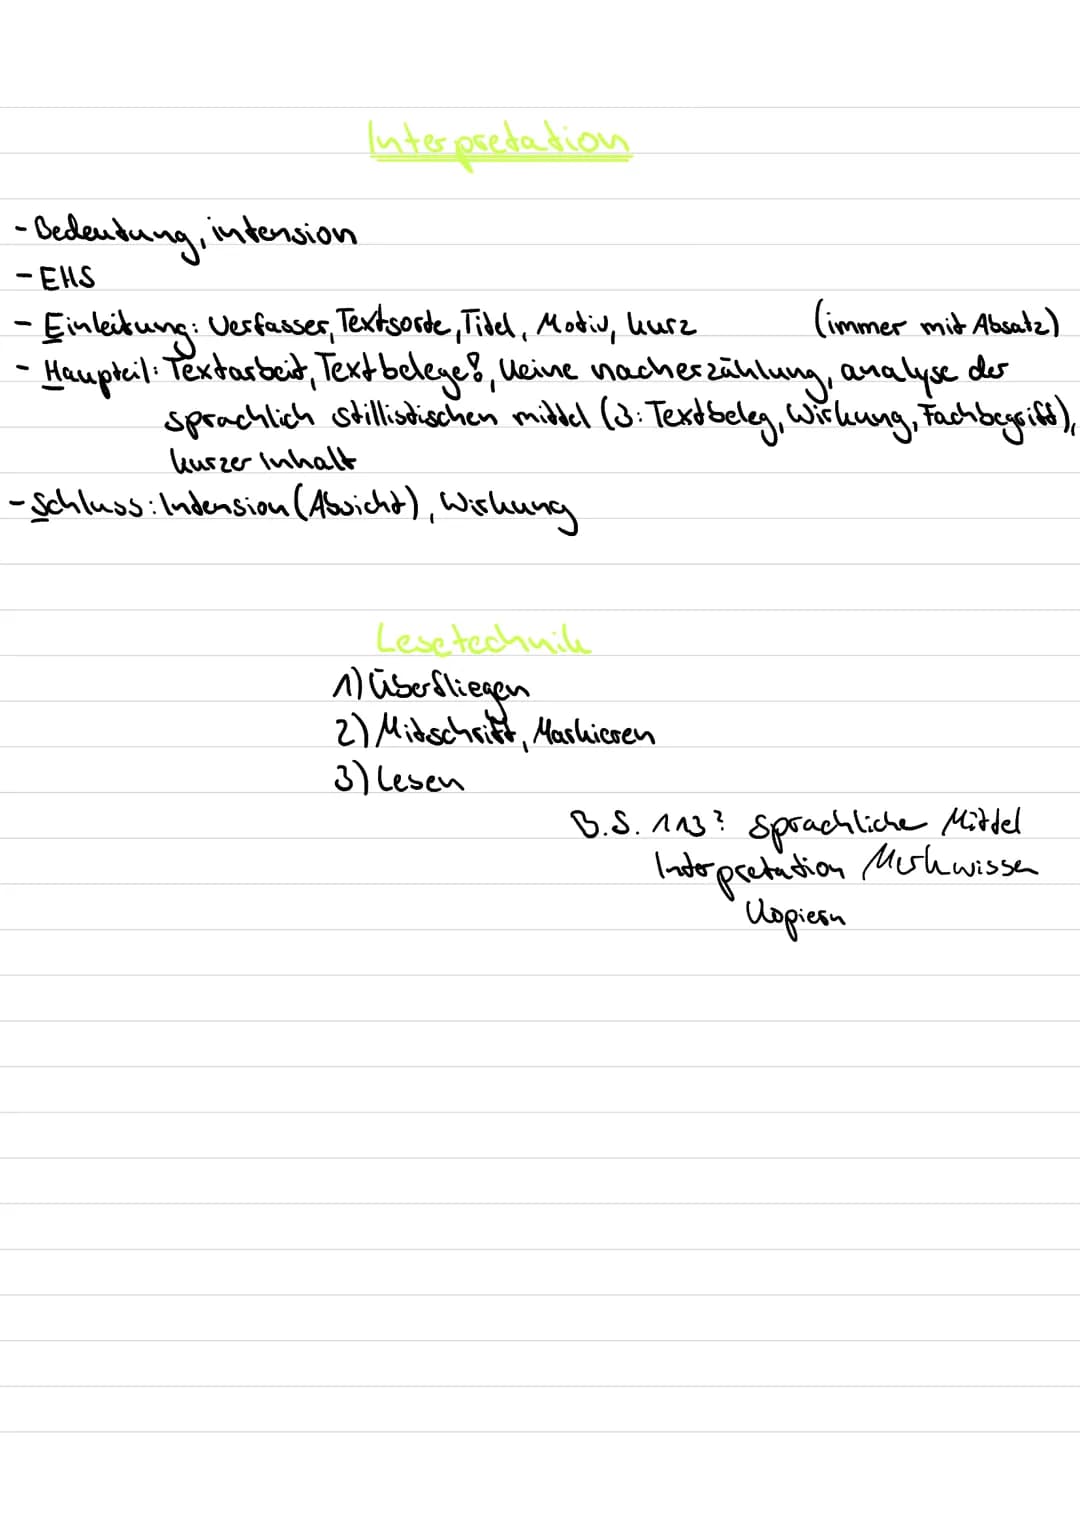 Interpretation
- Bedeutung, intension
- EHS
- Einleitung: Verfasser, Textsorte, Titel, Motiv, kurz (immer mit Absatz)
- Haupteil: Textarbeit, Textbelege?, keine nacherzählung, analyse der
sprachlich stillistischen mittel (3: Textbeleg, Wirkung, Fachbegriff),
kurzer Inhalt
- Schluss: Intension (Absicht), Wirkung
Lesetechnik
1) Überfliegen
2) Mitschrift, Markieren
3) Lesen
B.S. 113? sprachliche Mittel
Interpretation Merkwissen
Kopieren